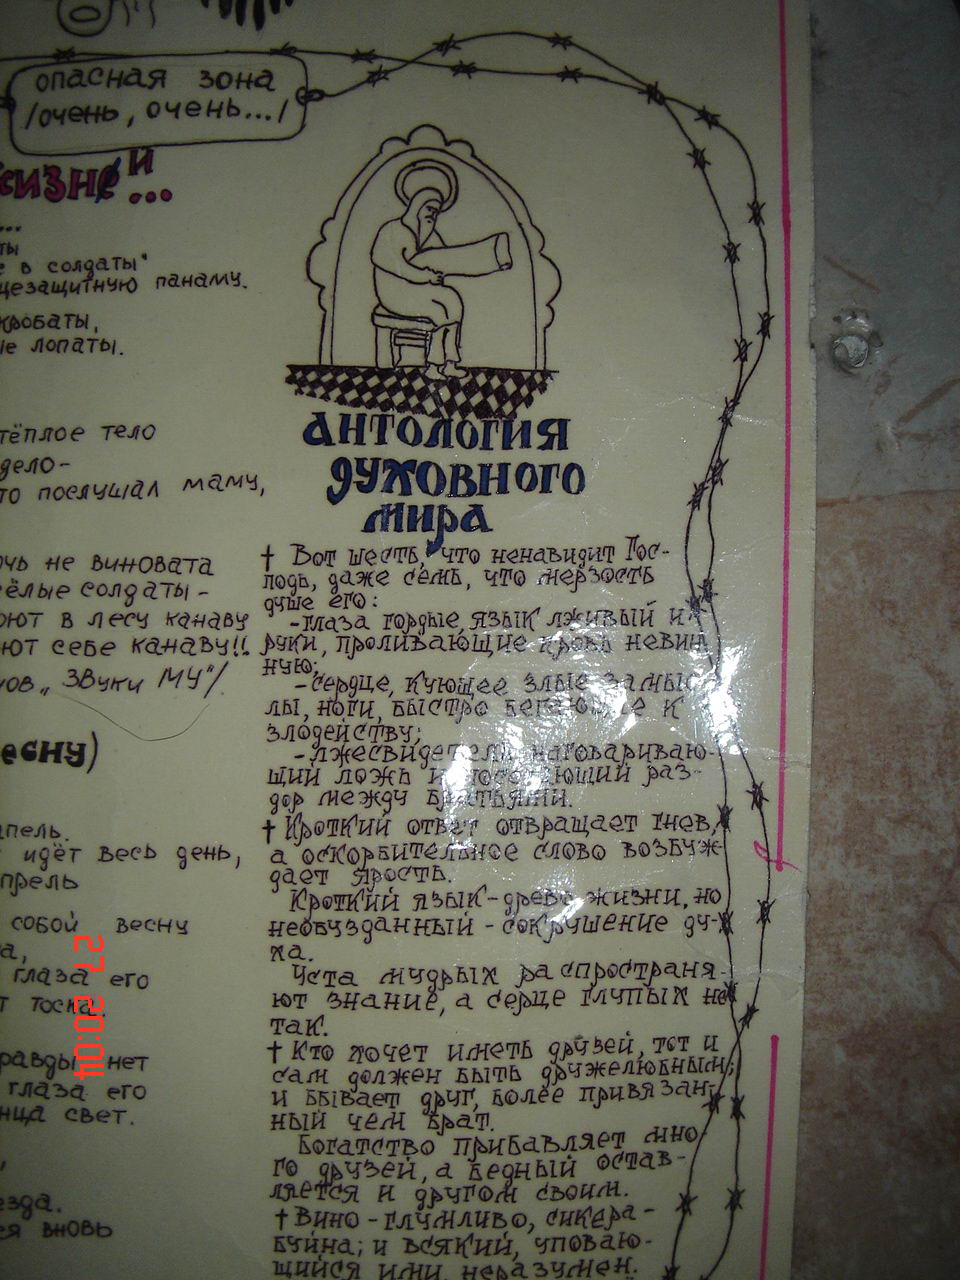 опасная зона
/очень, очень.../
жизни...
...
ты
в солдаты"
защитную панаму.
кробаты,
лопаты.
тёплое тело
дело-
то послушал маму,
не виновата
сёлые солдаты -
в лесу канаву
себе канаву!!
"Звуки МУ"/
весну)
апель.
идёт весь день,
прель
собой весну
а,
глаза его
т тоска.
равды нет
глаза его
нца свет.
езда.
вновь
Антология
духовного
мира
† Вот шесть, что ненавидит Гос-
подь, даже семь, что мерзость
душе его:
-глаза гордые, язык лживый и
руки, проливающие кровь невин
ную;
-сердце, кующее злые замыс-
лы, ноги, быстро бегающие к
злодейству;
-лжесвидетель, наговариваю-
щий ложь и посевающий раз-
дор между братьями.
† Кроткий ответ отвращает гнев,
а оскорбительное слово возбуж-
дает ярость.
Кроткий язык-древо жизни, но
необузданный - сокрушение ду-
ха.
Уста мудрых распространя-
ют знание, а серце глупых не
так.
† Кто хочет иметь друзей, тот и
сам должен быть дружелюбным;
и бывает друг, более привязан
ный чем брат.
Богатство прибавляет мно
го друзей, а бедный остав-
ляется и другом своим.
† Вино - глумливо, сикера -
буйна; и всякий, уповаю-
щийся ими, неразумен.
27 20:04